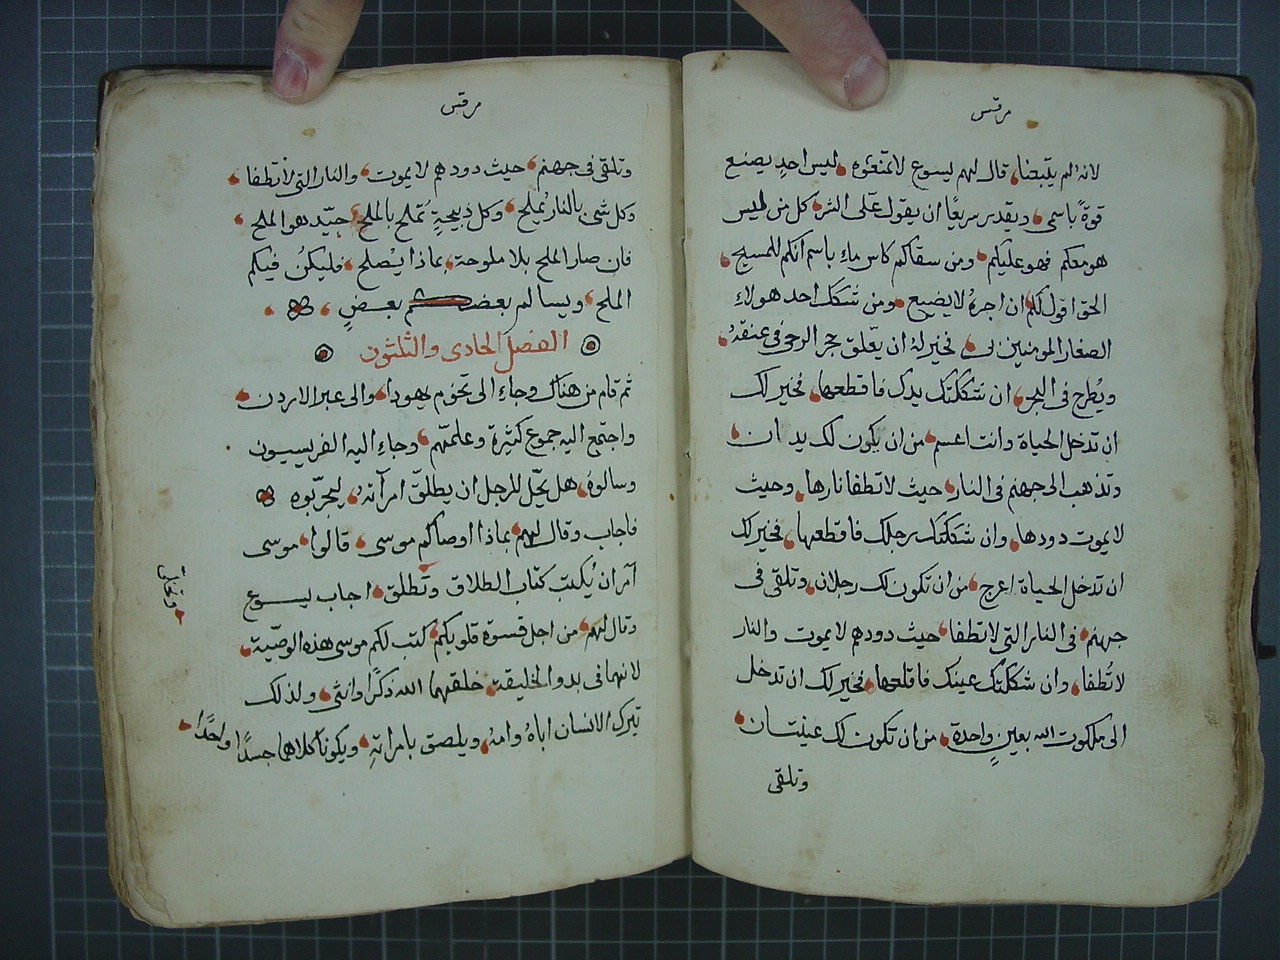 مرقس
لانه لم يتبعنا، قال لهم يسوع لا تمنعوه، ليس احد يصنع
قوةً باسمي، ويقدر سريعًا ان يقول علّى الشر، كل من ليس
هو معكم فهو عليكم، ومن سقاكم كاس ماءٍ باسم انكم للمسيح،
الحق اقول لكم ان اجرهُ لا يضيع، ومن شكك احد هولاءِ
الصغار المومنين بي، فخير لهُ ان يعّلق حجر الرحى في عنقهُ،
ويُطرح في البحر، ان شككتك يدك فاقطعها، فخير لك
ان تدخل الحياة وانت اعسم، من ان يكون لك يدان،
وتذهب الى جهنم في النار، حيث لا تطفا نارها، وحيث
لا يموت دودها، وان شككتك رجلك فاقطعها، فخير لك
ان تدخل الحياة اعرج، من ان تكون لك رجلان، وتلقى في
جهنم، في النار التي لا تطفا، حيث دودهم لا يموت والنار
لا تُطفا، وان شككتك عينك فاقلعها، فخير لك ان تدخل
الى ملكوت الله بعينٍ واحدة، من ان تكون لك عينتان،
وتلقى
مرقس
وتلقى في جهنم، حيث دودهم لا يموت، والنار التي لا تطفا،
وكل شي بالنار يُملح، وكل ذبيحةٍ تُملح بالملح، جيّد هو الملح،
فان صار الملح بلا ملوحة، بماذا يُصلح، فليكنُ فيكم
الملح، ويسالم بعضكم بعضٍ،
الفصل الحادى والثلثون
ثم قام من هناك وجاءِ الى تخوم يهودا، والى عبر الاردن،
واجتمع اليه جموع كثيرة وعلمّهم، وجاءِ اليه الفريسيون
وسالوهُ، هل يحّل للرجل ان يطلّق امرآتهُ، ليجرّبوه
فاجاب وقال لهم، بماذا اوصاكم موسى، قالوا، موسى
آمر ان يُكتب كتاب الطلاق وتُطلق، اجاب يسوع
وقال لهم، من اجل قسوة قلوبكم، كتب لكم موسى هذه الوصّية،
لانهما في بدو الخليقة، خلقهما الله ذكرًا وانثى، ولذلك
يترك الانسان اباهُ وامهُ، ويلصق بامراتهِ، ويكونا كلاهما جسدًا واحدًا،
وتخلّى